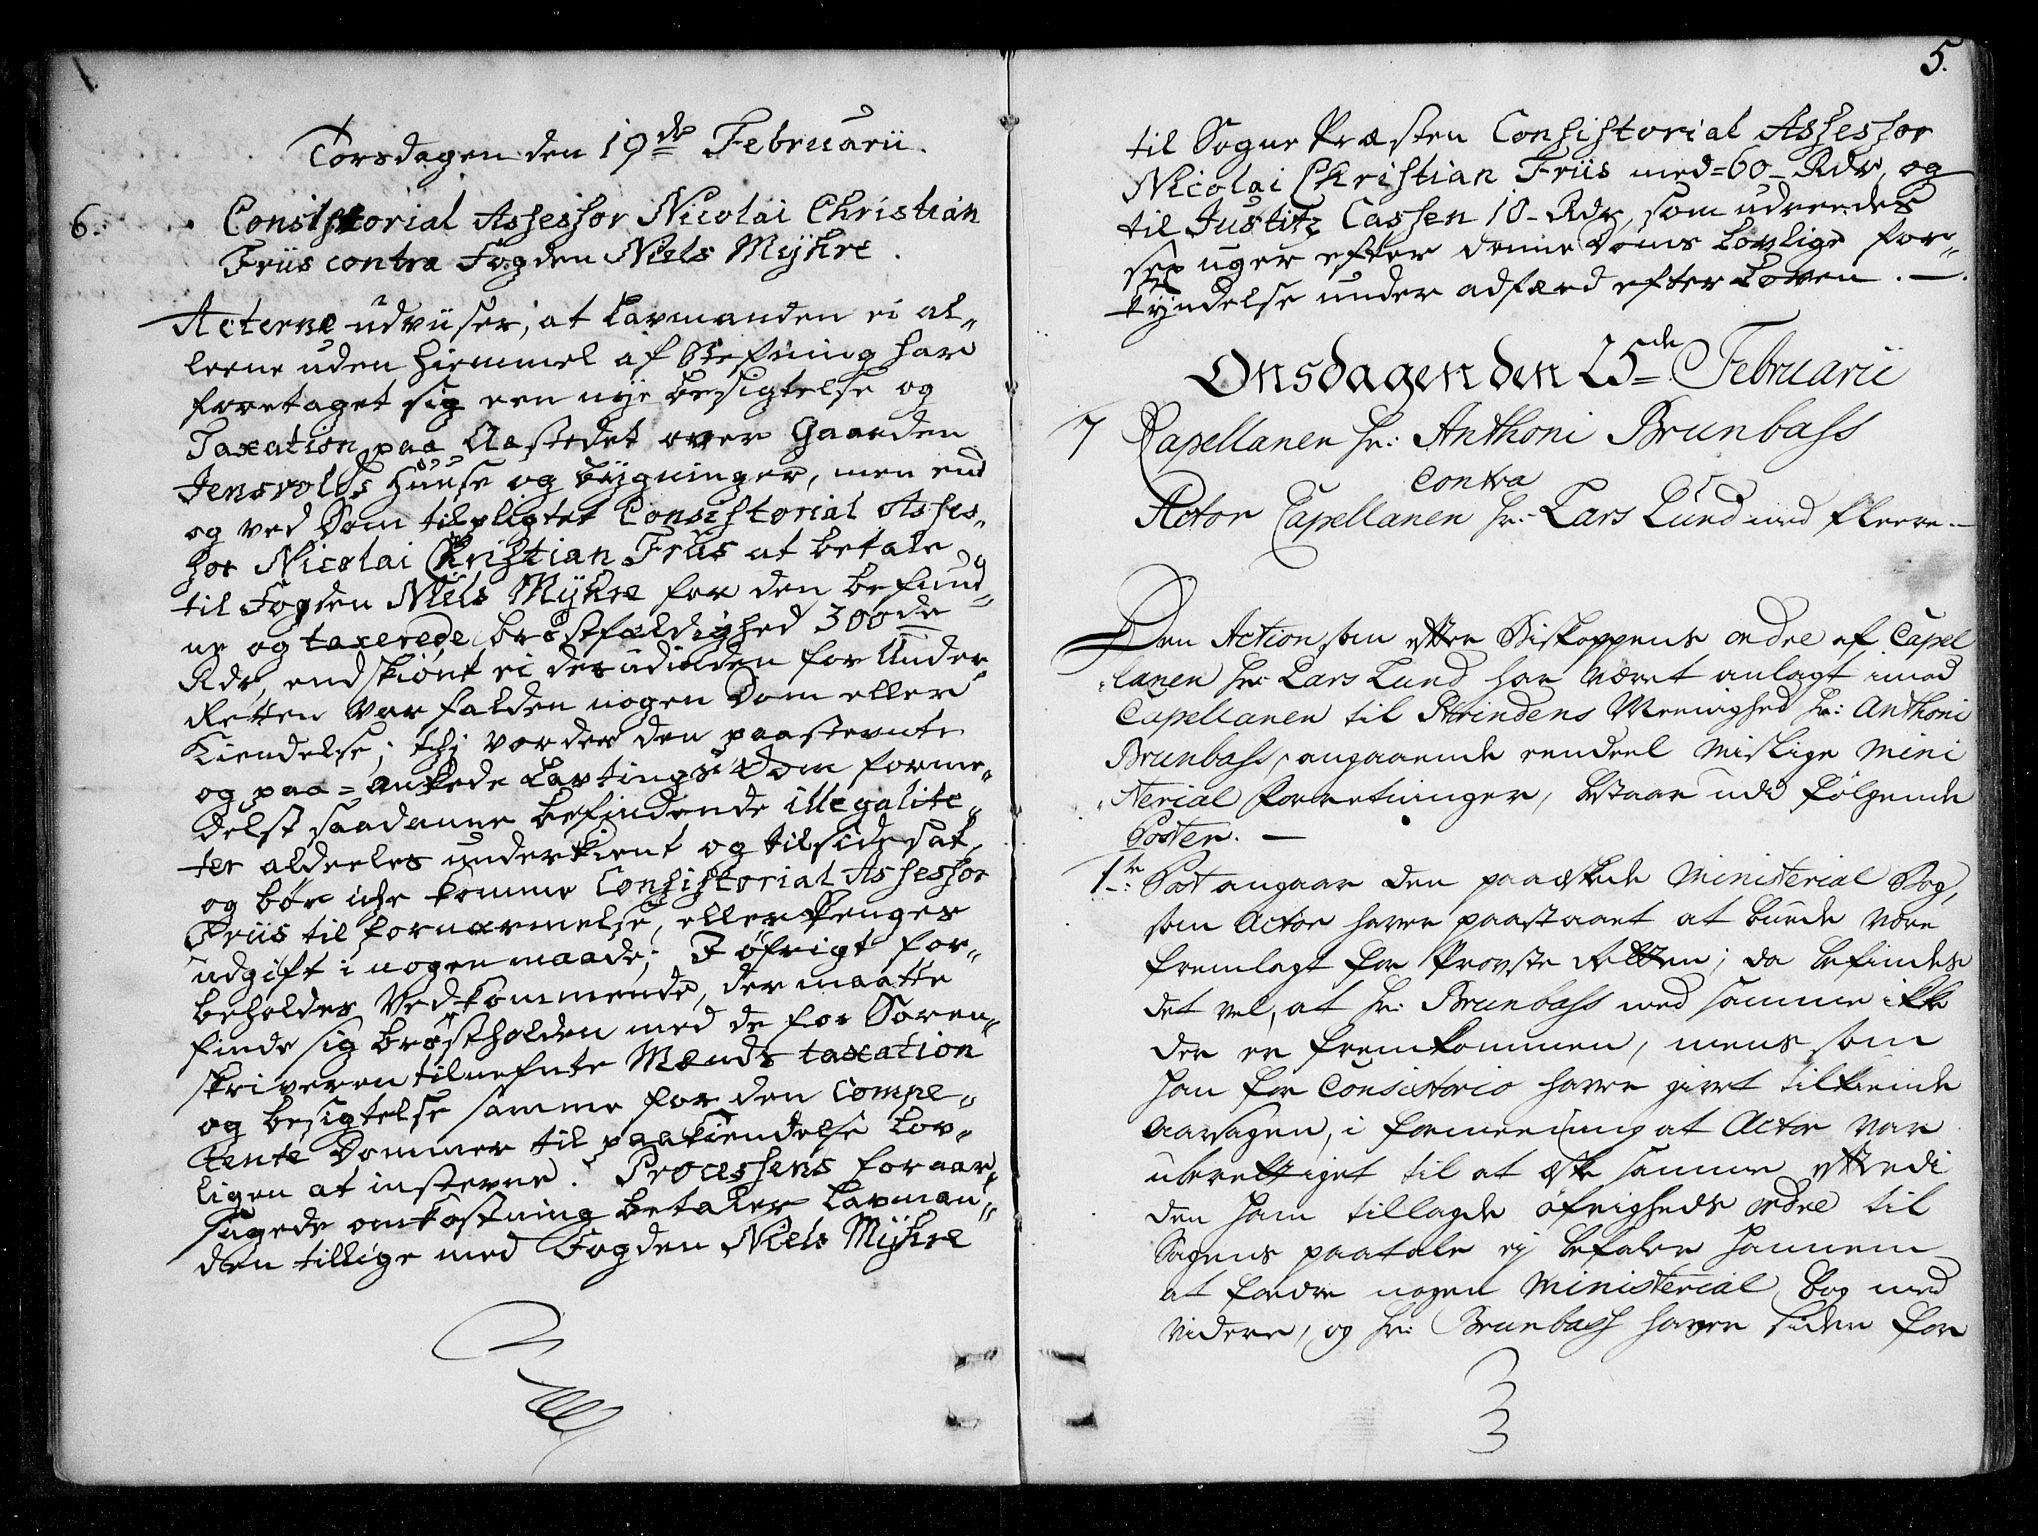 Torsdagen den 19de Februarii.
6. Consistorial Assessor Nicolai Christian
Friis contra Fogden Niels Mÿhre.
Acterne udviiser, at Lavmanden ei al„
leene uden Hiemmel af Stefning har
foretaget sig een nÿe besigtelse og
Taxation paa Aastedet over Gaarden
Jensvolds Huuse og bÿgninger, men end
og ved Dom tilpligtet Consistorial Asses„
sor Nicolai Christian Friis at betale
til Fogden Niels Mÿhre for den befund„
ne og taxerede brøstfældighed 300de
Rdr, endskiønt ei derudinden for Under
Retten var falden nogen Dom eller
Kiendelse; thi vorder den paastevnte
og paa=ankede Lavtings Dom forme„
delst saadanne befindende illegalite„
ter aldeeles underkient og tilsidesat,
og bør icke komme Consistorial Assessor
Friis til fornærmelse, eller Penges
udgift i nogen maade; I øfrigt for„
beholdes Vedkommende, der maatte
finde sig brøstholden med de for Soren„
skriveren tilnefnte Mænds taxation
og besigtelse samme for den Compe„
tente Dommer til paakiendelse Lov„
ligen at instevne. Processens foraar„
sagede omkostning betaler Lavman„
den tillige med Fogden Niels Mÿhre
5.
til Sogne Præsten Consistorial Assessor
Nicolai Christian Friis med=60_ Rdr, og
til Justitz Cassen 10_ Rdr, som udreedes
sex uger efter denne Doms Lovlige for„
kÿndelse under adfærd efter Loven. —
Onsdagen den 25de Februarii
7 Capellanen Hr: Anthoni Brunbass
contra
Actor Capellanen Hr: Lars Lund med fleere.—
Den Action, som efter Biskoppens ordre af Capel
„lanen Hr: Lars Lund har været anlagt imod
Capellanen til Strindens Meenighed Hr: Anthoni
Brunbass, angaaende eendeel mislige Mini
„sterial forretninger, bestaar udi følgende
Poster. —
1te: Post angaar den paaæskede Ministerial Bog,
som Actor haver paastaaet at burde være
fremlagt for Provste Retten; da befindes
det vel, at Hr: Brunbass med samme ikke
der er fremkommen, mens som
han for Consistorio haver givet tilkiende
Aarsagen, i formeening at Actor var
uberettiget til at æske samme efterdi
den ham tillagde øfrigheds ordre til
Sagens paatale ej befaler hannem
at fordre nogen Ministerial Bog med
videre, og Hr: Brunbass haver siden for